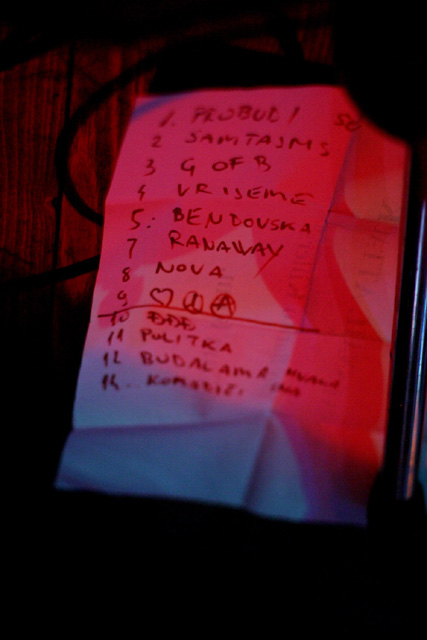 1. PROBUDI
2 SAMTASMS
3 G OF B
4 VRIJEME
5. BENDOVSKA
7 RANAWAY
8 NOVA
9 ♡ ☮ Ⓐ
10 ĐĐĐ
11 PULITKA
12 BUDALAMA
14.